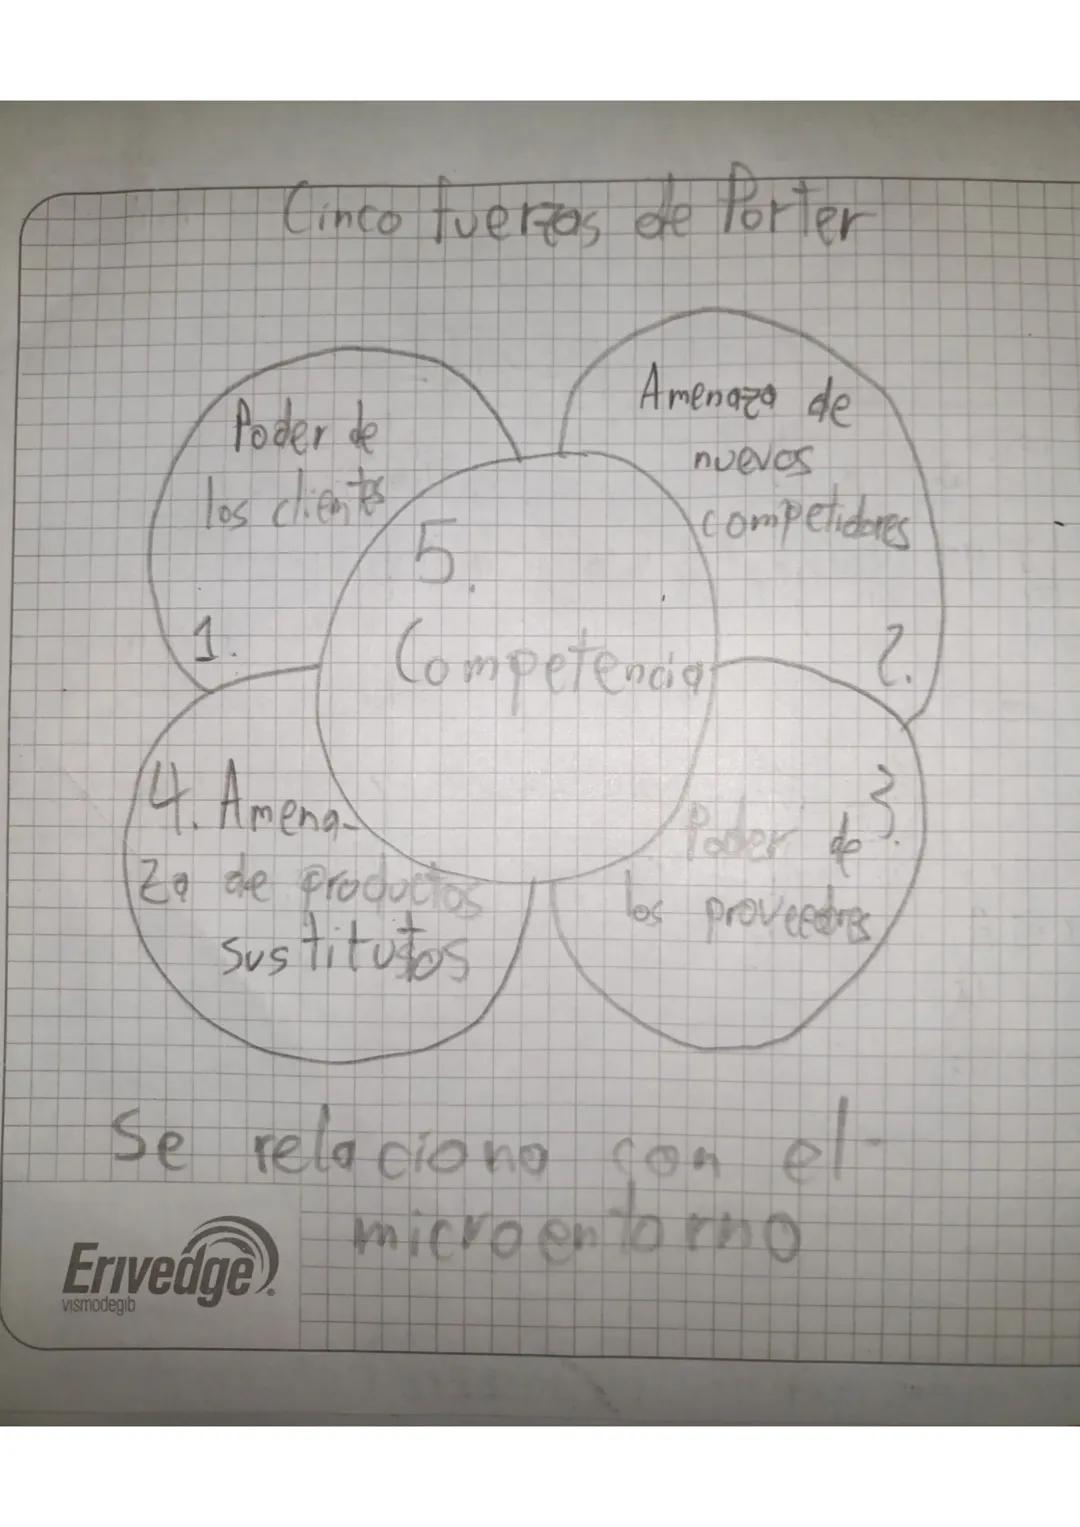 Cinco fuerzas de Porter
Poder de
los clientes
1.
Amenaza de
nuevos
competidores
2.
5.
Competencia
4. Amena-
za de productos
sustitutos
3.
Poder de
los proveedores
Se relaciona con el
microentorno
Erivedge
vismodegib